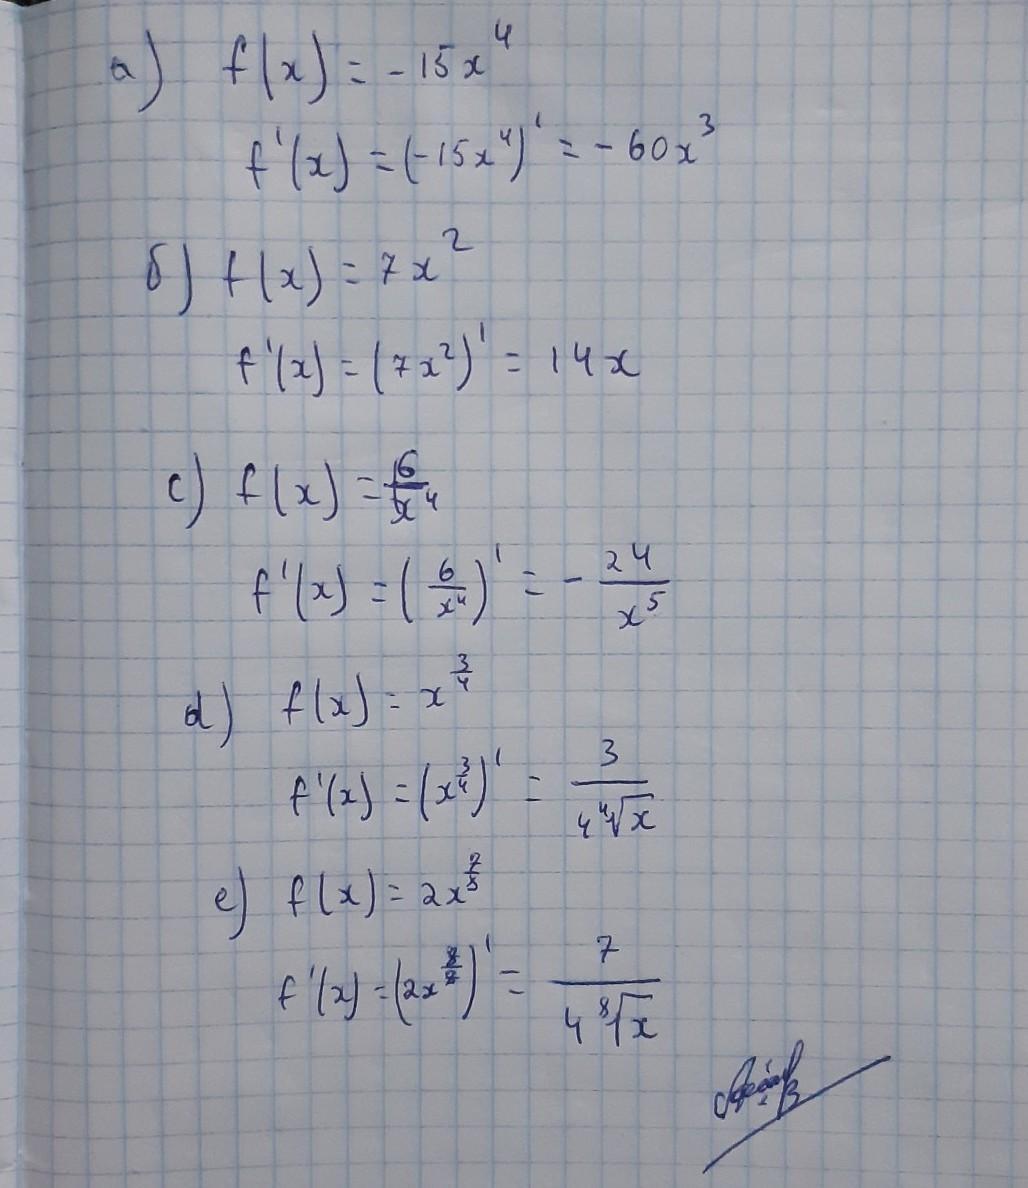 а) f(x) = -15x⁴
f'(x) = (-15x⁴)' = -60x³
б) f(x) = 7x²
f'(x) = (7x²)' = 14x
c) f(x) = 6/x⁴
f'(x) = (6/x⁴)' = - 24/x⁵
d) f(x) = x^(3/4)
f'(x) = (x^(3/4))' = 3/(4⁴√x)
e) f(x) = 2x
f'(x) = (2x)' = 7/(4⁸√x)